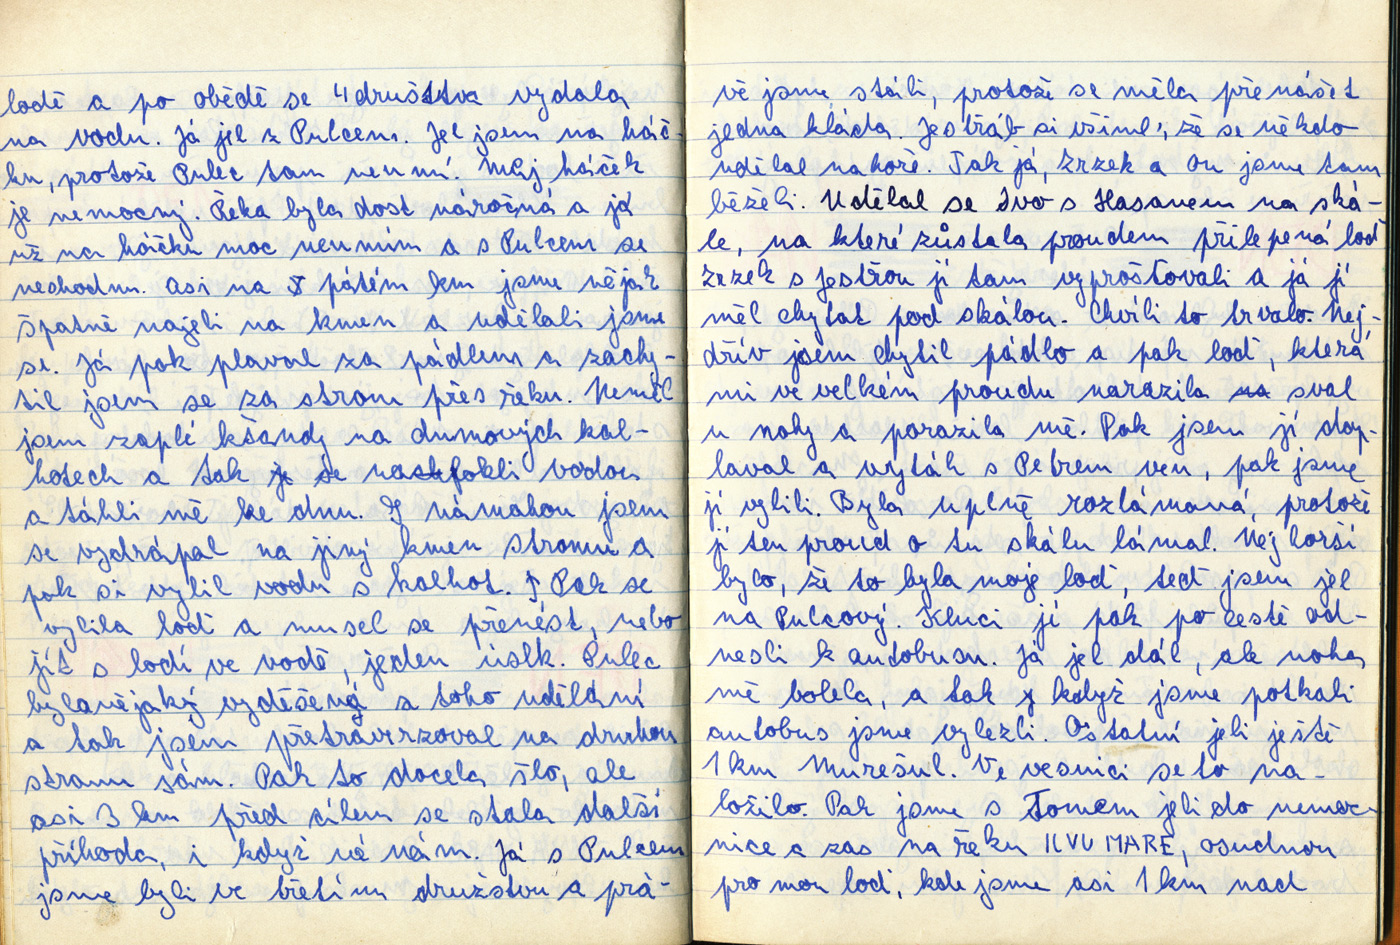 lodě a po obědě se 4 družstva vydala
na vodu. Já jel z Pulcem. Jel jsem na háč-
ku, protože Pulec tam neumí. Můj háček
je nemocný. Řeka byla dost náročná a já
už na háčku moc neumím a s Pulcem se
neshodnu. Asi na pátém km jsme nějak
špatně najeli na kmen a udělali jsme
se. Já pak plaval za pádlem a zachy-
til jsem se za strom přes řeku. Neměl
jsem zaplé kšandy na dumových kal-
hotech a tak se nafokli vodou
a táhli mě ke dnu. S námahou jsem
se vydrápal na jiný kmen stromu a
pak si vylil vodu s kalhot. Pak se
vylila loď a musel se přenést, nebo
jít s lodí ve vodě, jeden úslk. Pulec
byl nějaký vyděšený z toho udělání
a tak jsem přetraverzoval na druhou
stranu sám. Pak to docela šlo, ale
asi 3 km před cílem se stala další
příhoda, i když né nám. Já s Pulcem
jsme byli ve třetím družstvu a prá-
vě jsme stáli, protože se měla přenášet
jedna kláda. Jestřáb si všiml, že se někdo
udělal nahoře. Tak já, Zrzek a on jsme tam
běželi. Udělal se Ivo s Hasanem na ská-
le, na které zůstala proudem přilepená loď
Zrzek s Jestřou jí tam vyprošťovali a já jí
měl chytat pod skálou. Chvíli to trvalo. Nej-
dřív jsem chytil pádlo a pak loď, která
mi ve velkém proudu narazila sval
u nohy a porazila mě. Pak jsem jí dop-
laval a vytáh s Petrem ven, pak jsme
jí vylili. Byla uplně rozlámaná, protože
jí ten proud o tu skálu lámal. Nejhorší
bylo, že to byla moje loď, teď jsem jel
na Pulcový. Kluci jí pak po cestě od-
nesli k autobusu. Já jel dál, ale noha
mě bolela, a tak když jsme potkali
autobus jsme vylezli. Ostatní jeli ještě
1 km Murešul. Ve vesnici se to na-
ložilo. Pak jsme s Tomem jeli do nemoc-
nice a zas na řeku ILVU MARE, osudnou
pro mou lodi, kde jsme asi 1 km nad